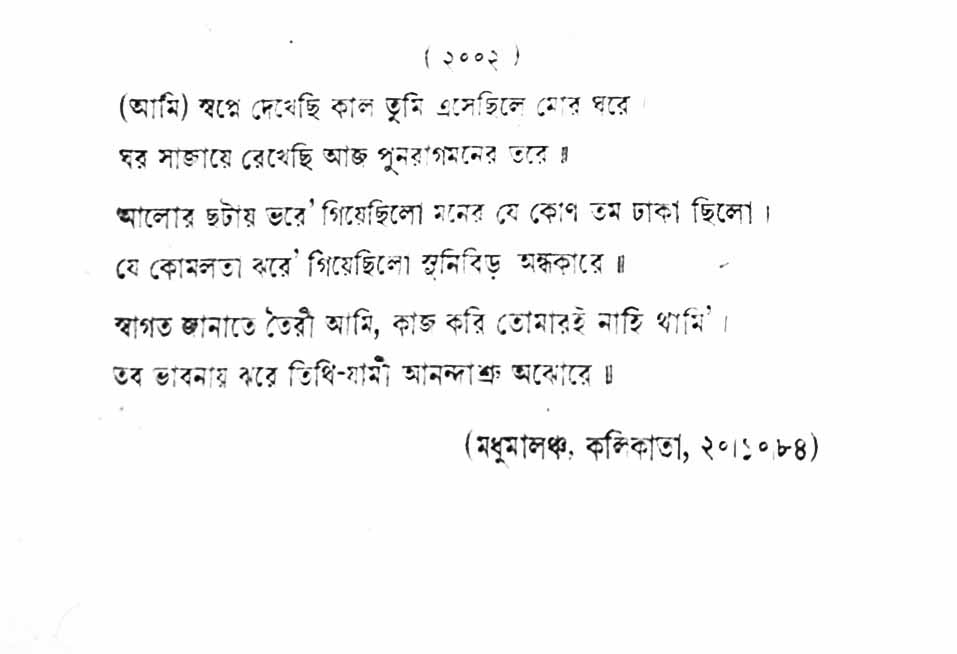 ( ২০০২ )
(আমি) স্বপ্নে দেখেছি কাল তুমি এসেছিলে মোর ঘরে ।
ঘর সাজায়ে রেখেছি আজ পুনরাগমনের তরে ॥
আলোর ছটায় ভরে' গিয়েছিলো মনের যে কোণ তম ঢাকা ছিলো ।
যে কোমলতা ঝরে' গিয়েছিলো সুনিবিড় অন্ধকারে ॥
স্বাগত জানাতে তৈরী আমি, কাজ করি তোমারই নাহি থামি' ।
তব ভাবনায় ঝরে তিথি-যামী আনন্দাশ্রু অঝোরে ॥
(মধুমালঞ্চ, কলিকাতা, ২০।১০।৮৪)